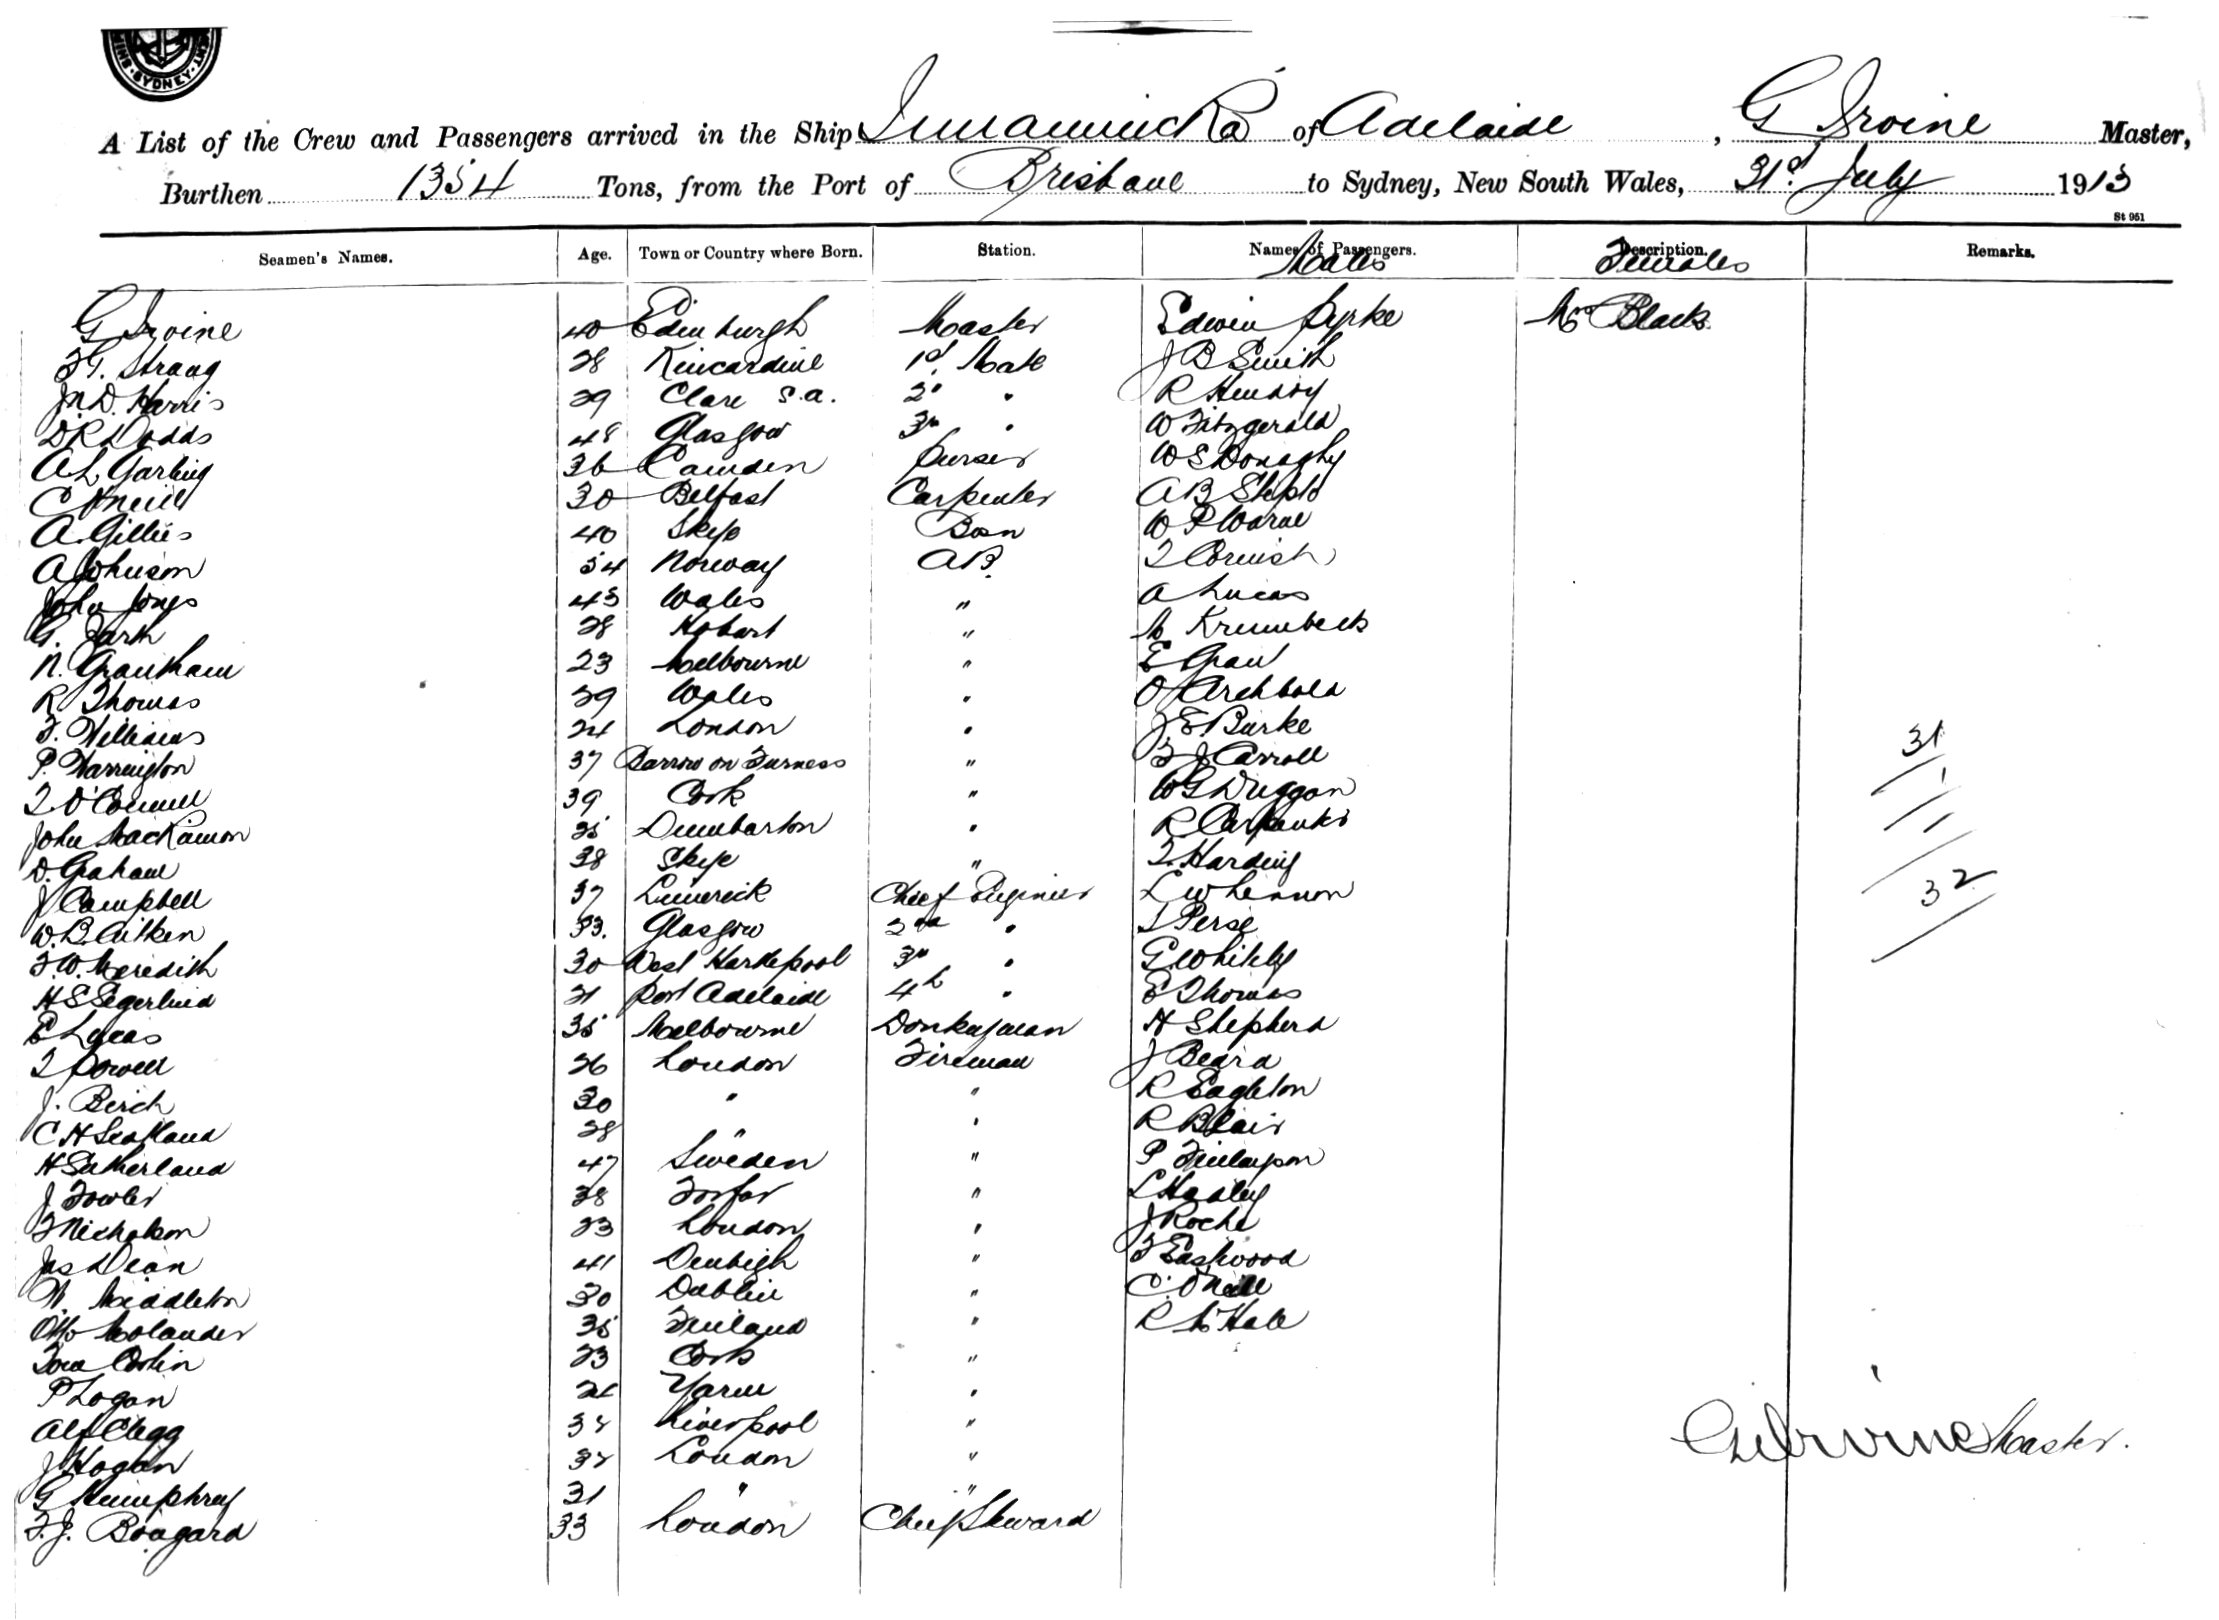 SYDNEY
A List of the Crew and Passengers arrived in the Ship Innamincka of Adelaide, G Irvine Master,
Burthen 1354 Tons, from the Port of Brisbane to Sydney, New South Wales, 31st July 1913
St 951
Seamen's Names. Age. Town or Country where Born. Station. Names of Passengers. Description. Remarks.
Males Females
G Irvine 40 Edinburgh Master Edwin Pyrke Mrs Black
F.G. Strang 28 Kincardine 1st Mate J B Smith
Jn. D. Harris 29 Clare S.A. 2d " R Hendry
D R Dodds 48 Glasgow 3rd " W Fitzgerald
A L Garling 36 Camden Purser W S Donaghy
C O'Neill 30 Belfast Carpenter A B
A. Gillies 40 Skye Bosn W P Warne
A Johnson 54 Norway AB. T Cornish
John Jones 43 Wales " A Lucas
G. 28 Hobart " M Krumbeck
N. Grantham 23 Melbourne " E
R Thomas 29 Wales " O Archbold
F. Williams 24 London " J. E. Burke
P. Warrington 37 Barrow on Furness " F J Carroll 31
T O'Connell 39 Cork " W G Duggan 1
John MacKinnon 35 Dumbarton " R. Carpenter
D. Graham 38 Skye " T. Harding
J Campbell 37 Limerick Chief Engineer L W Lennon 32
W. B. Aitken 33. Glasgow 2nd " Perse
F. W. Meredith 30 West Hartlepool 3rd " G Whitely
H S Segerlind 21 Port Adelaide 4th " E Thomas
E Lucas 35 Melbourne Donkeyman H Shepherd
T Powell 26 London Fireman J Beard
J. Birch 30 " " R Eagleton
C H 28 " " R Blair
H Sutherland 47 Sweden " P Finlayson
J Fowler 38 Forfar " L Healey
F Nicholson 23 London " J Roche
Jas Dean 41 Denbigh " F Eastwood
W. Middleton 30 Dublin " C. O'Neill
Otto Molander 35 Finland " R McHale
Tom 23 Cork "
P Logan 24 Yarm "
Alf Clegg 32 Liverpool "
J Hogan 32 London "
G Humphrey 31 " "
F. J. Bongard 33 London Chief Steward
G Irvine Master.